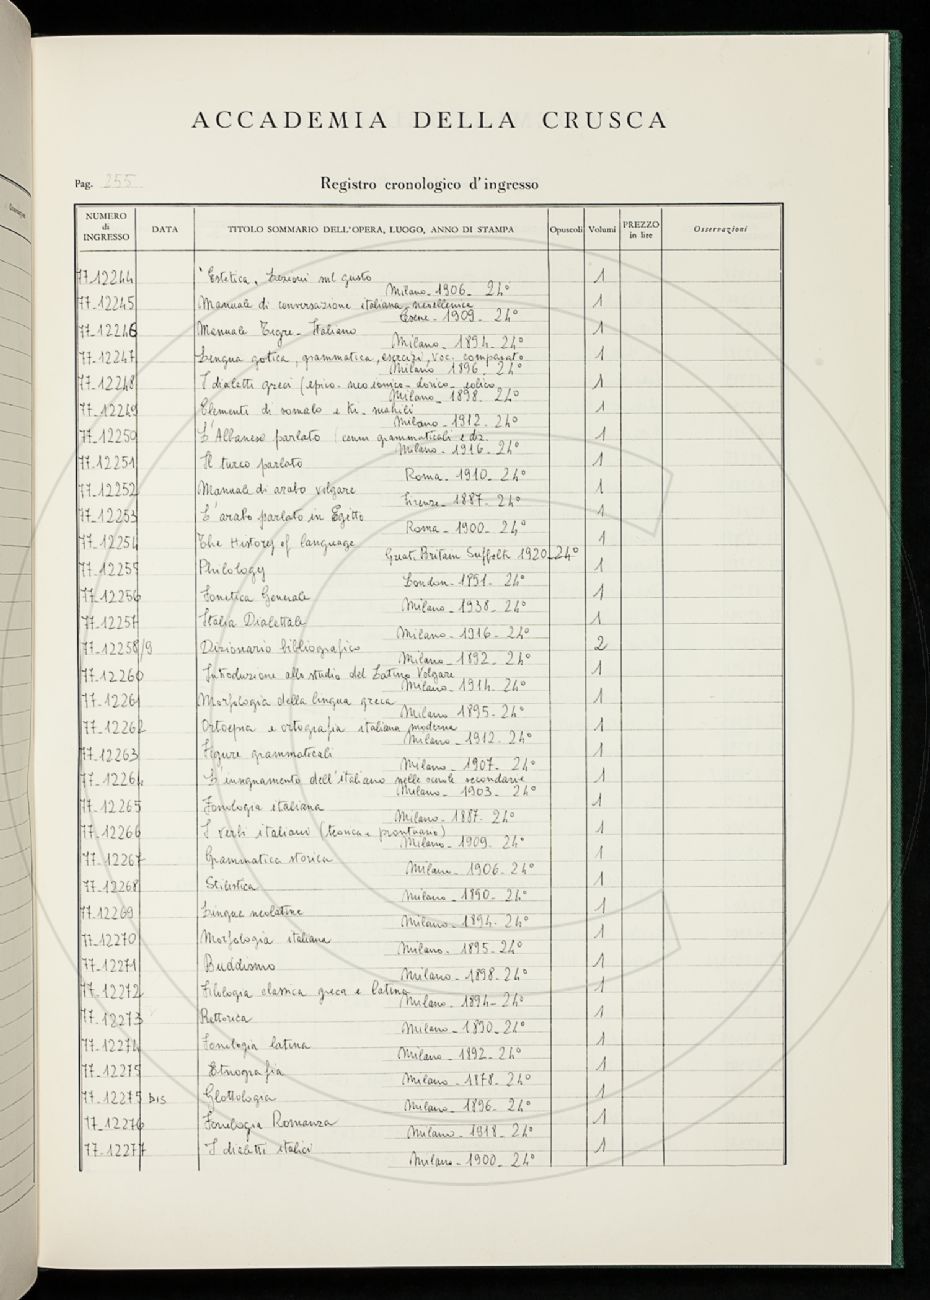 ACCADEMIA DELLA CRUSCA
Pag. 255
Registro cronologico d'ingresso
NUMERO di INGRESSO DATA TITOLO SOMMARIO DELL'OPERA, LUOGO, ANNO DI STAMPA Opuscoli Volumi PREZZO in lire Osservazioni
77-12244 Estetica. Lezioni sul gusto 1
Milano - 1906 - 24°
77-12245 Manuale di conversazione italiana-neoellenica 1
1909 - 24°
77-12246 Manuale Tigre-Italiano 1
Milano - 1894 - 24°
77-12247 Lingua gotica, grammatica, esercizi, voc. comparato 1
Milano 1896 - 24°
77-12248 I dialetti greci (epico-neo ionico-dorico-eolico 1
Milano - 1898 - 24°
77-12249 Elementi di somalo e ki-suahili 1
Milano - 1912 - 24°
77-12250 L'Albanese parlato (cenni grammaticali e dz. 1
Milano - 1916 - 24°
77-12251 Il turco parlato 1
Roma - 1910 - 24°
77-12252 Manuale di arabo volgare 1
Firenze - 1887 - 24°
77-12253 L'arabo parlato in Egitto 1
Roma - 1900 - 24°
77-12254 The History of language 1
Great Britain Suffolk 1920 - 24°
77-12255 Philology 1
London - 1891 - 24°
77-12256 Fonetica Generale 1
Milano - 1938 - 24°
77-12257 Italia Dialettale 1
Milano - 1916 - 24°
77-12258/9 Dizionario bibliografico 2
Milano - 1892 - 24°
77-12260 Introduzione allo studio del Latino Volgare 1
Milano - 1914 - 24°
77-12261 Morfologia della lingua greca 1
Milano 1895 - 24°
77-12262 Ortoepia e ortografia italiana moderna 1
Milano - 1912 - 24°
77-12263 Figure grammaticali 1
Milano - 1907 - 24°
77-12264 L'insegnamento dell'italiano nelle scuole secondarie 1
Milano - 1903 - 24°
77-12265 Fonologia italiana 1
Milano - 1887 - 24°
77-12266 I verbi italiani (teorica e prontuario) 1
Milano - 1909 - 24°
77-12267 Grammatica storica 1
Milano - 1906 - 24°
77-12268 Stilistica 1
Milano - 1890 - 24°
77-12269 Lingue neolatine 1
Milano - 1894 - 24°
77-12270 Morfologia italiana 1
Milano - 1895 - 24°
77-12271 Buddismo 1
Milano - 1898 - 24°
77-12272 Filologia classica greca e latina 1
Milano - 1894 - 24°
77-12273 Rettorica 1
Milano - 1890 - 24°
77-12274 Fonologia latina 1
Milano - 1892 - 24°
77-12275 Etnografia 1
Milano - 1878 - 24°
77-12275 bis Glottologia 1
Milano - 1896 - 24°
77-12276 Fonologia Romanza 1
Milano - 1918 - 24°
77-12277 I dialetti italici 1
Milano - 1900 - 24°